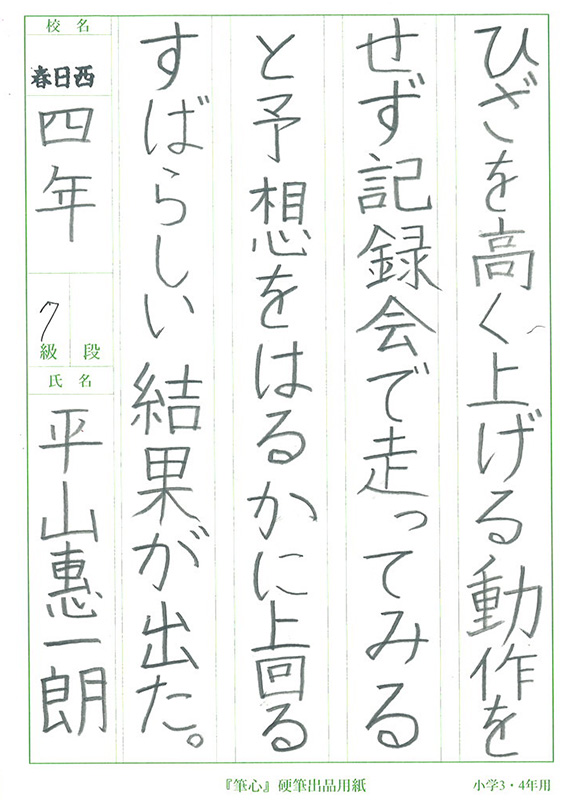 ひざを高く上げる動作を
せず記録会で走ってみる
と予想をはるかに上回る
すばらしい結果が出た。
校名
春日西
四年
7
級 段
氏名
平山恵一朗
『筆心』硬筆出品用紙
小学3・4年用